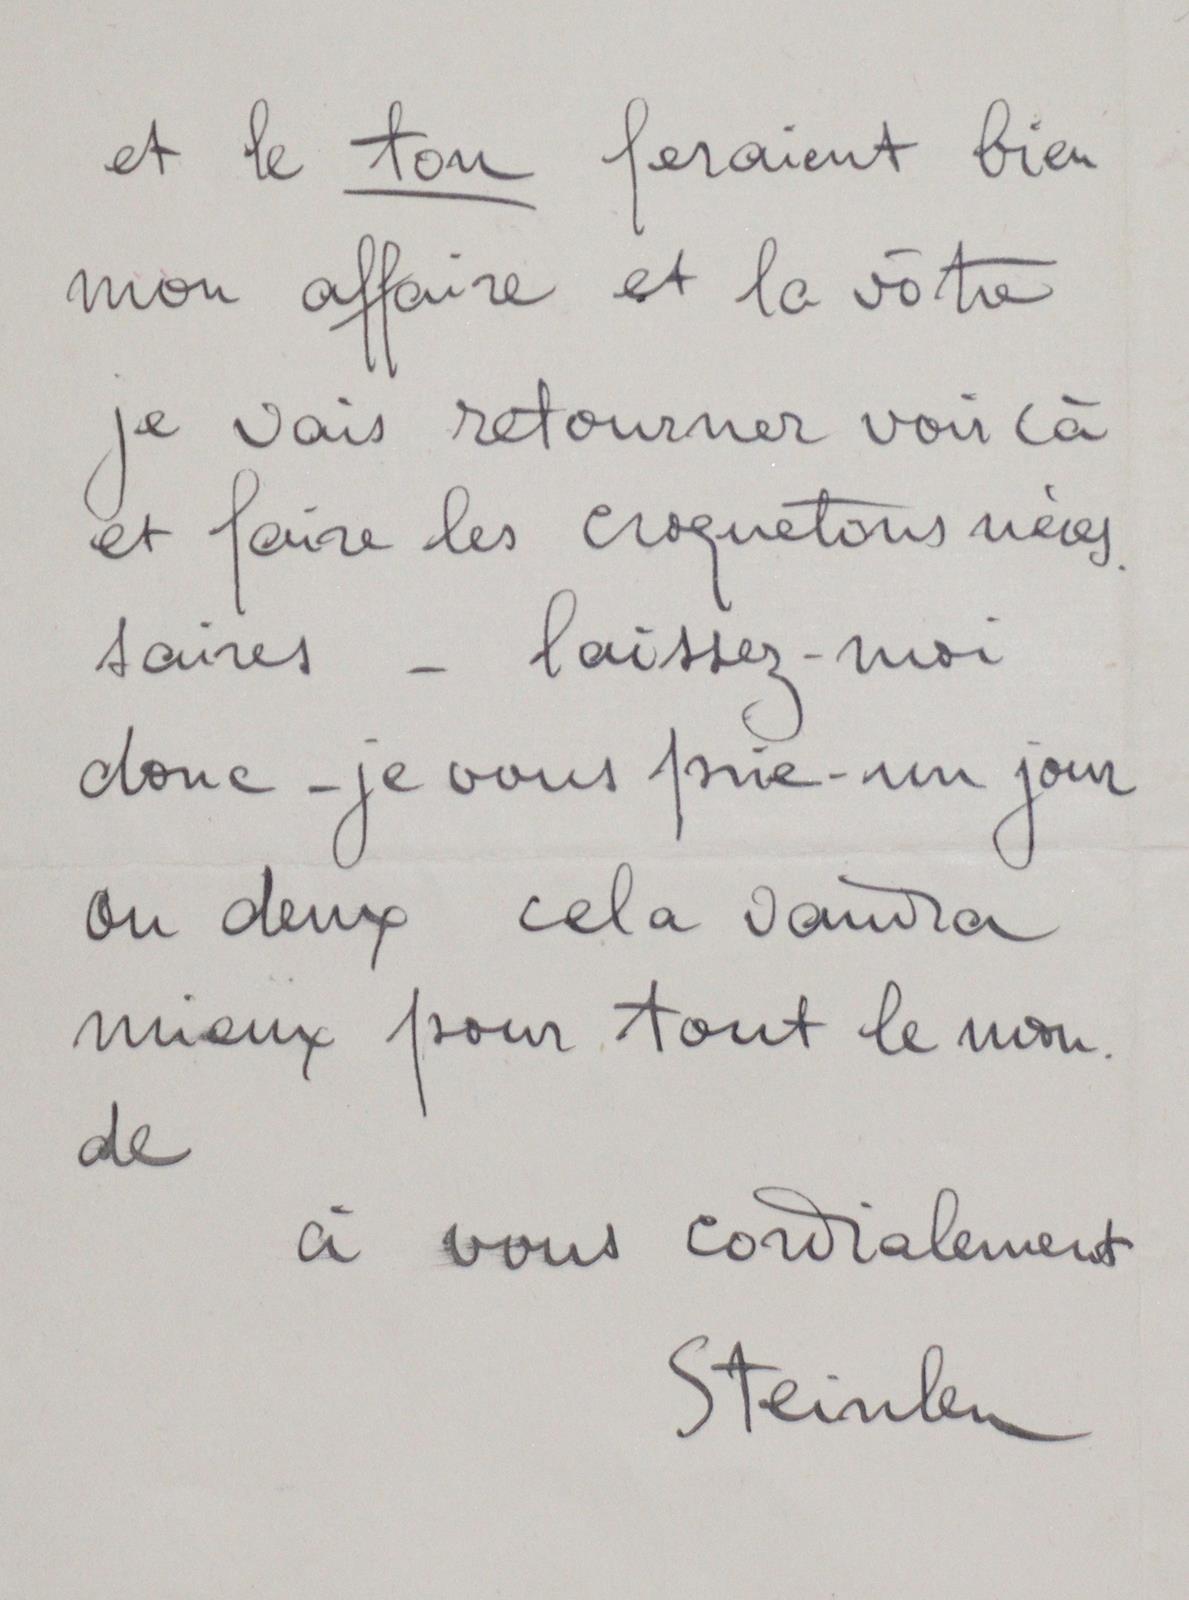 et le ton feraient bien
mon affaire et la vôtre
je vais retourner voir cà
et faire les croquetons néces.
saires - laissez-moi
donc - je vous prie - un jour
ou deux cela vaudra
mieux pour tout le mon.
de
à vous cordialement
Steinlen